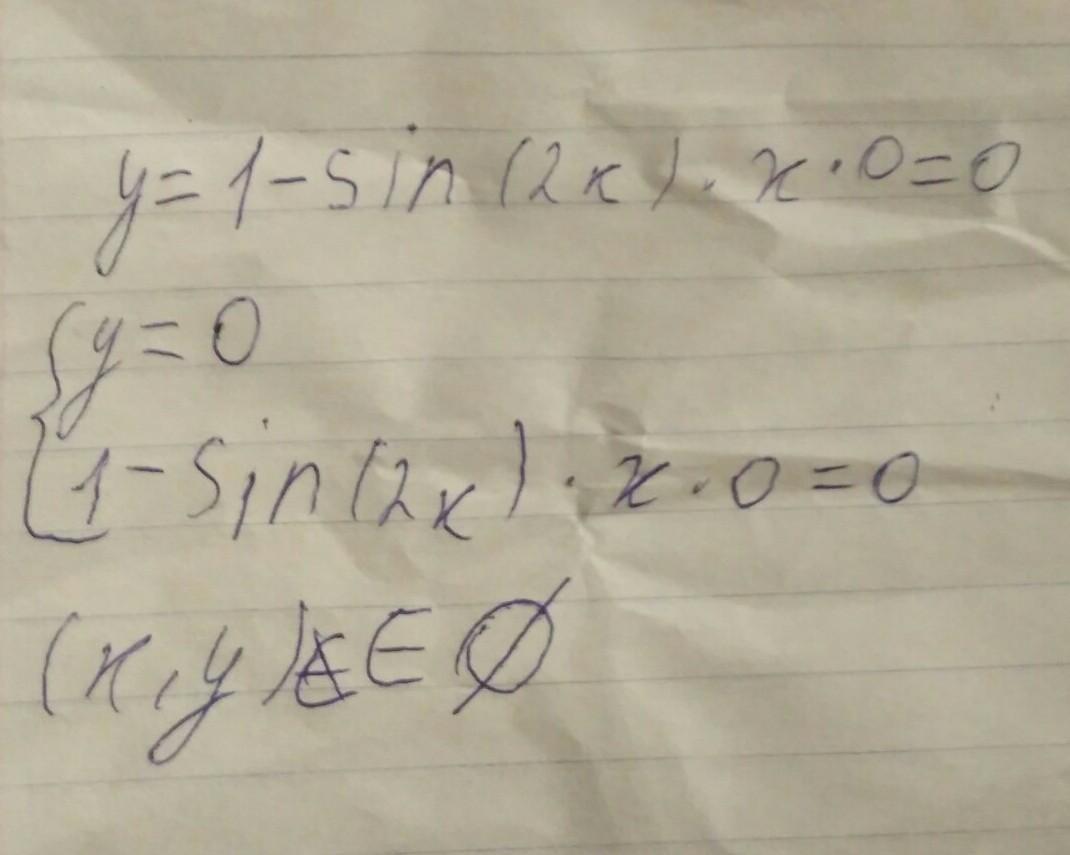 y = 1 - sin (2x) · x · 0 = 0
y = 0
1 - sin (2x) · x · 0 = 0
(x, y) ∈ ∅